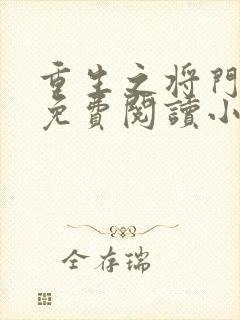 重生之将門
免費閱讀小
全存瑞